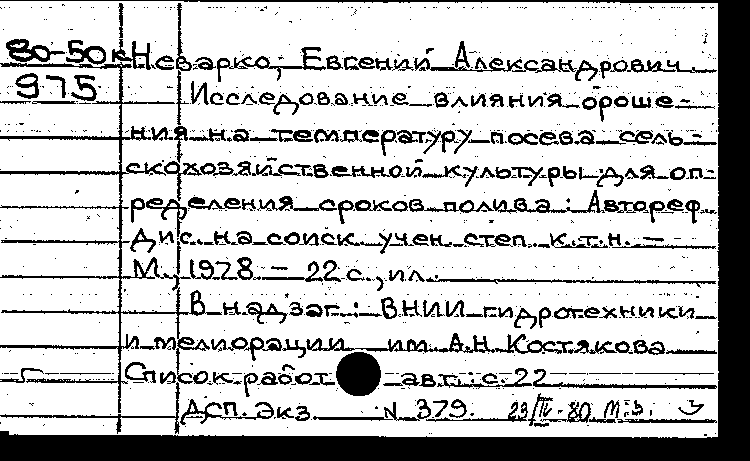 80-50к Неварко, Евгений Александрович.
975 Исследование влияния ороше-
ния на температуру посева сель-
скохозяйственной культуры для оп-
ределения сроков полива: Автореф.
Дис. на соиск. учен. степ. к.т.н. —
М., 1978. — 22 с., ил.
В надзаг.: ВНИИ гидротехники
и мелиорации им. А.Н. Костякова
Список работ авт.: с. 22
ДСП. Экз. N 379. 23/IV-80